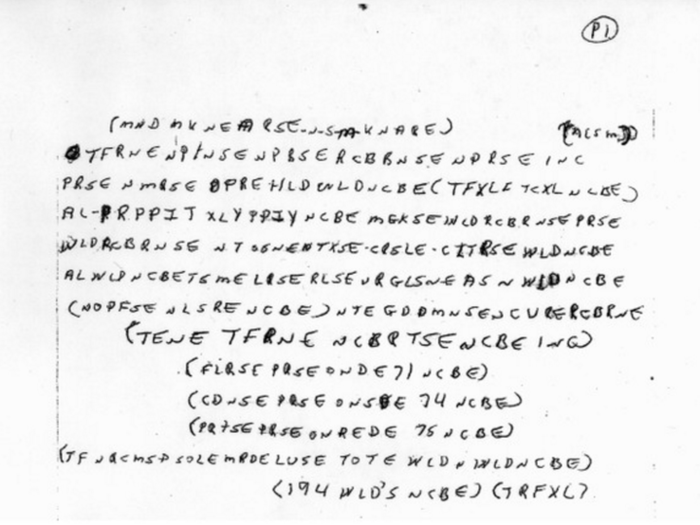 P1
(MND MKNEARSE-N-S-M-KNARE) (ACSM)
TFRNENPINSENPBSERCBBNSENPRSEINC
PRSENMRSEOPREHLDWLDNCBE(TFXLFTCXLNCBE)
AL-PRPPITXLYPPIYNCBEMGKSEWLDRCBRNSEPRSE
WLDRCBRNSENTOSNENTXSE-CRSLE-CITRSEWLDNCBE
ALWLPNCBETSMELRSERLSEURGLSNEASNWLDNCBE
(NOPFSENLSRENCBE)NTEGDDMNSENCURERCBRNE
(TENETFRNENCBRTSENCBEING)
(FLRSEPRSEONDE71NCBE)
(CDNSEPRSEONSDE74NCBE)
(PRTSEPRSEONREDE75NCBE)
(TFNRCMSPSOLEMRDELUSETOTEWLDNWLDNCBE)
(194WLD'SNCBE)(TRFXL)